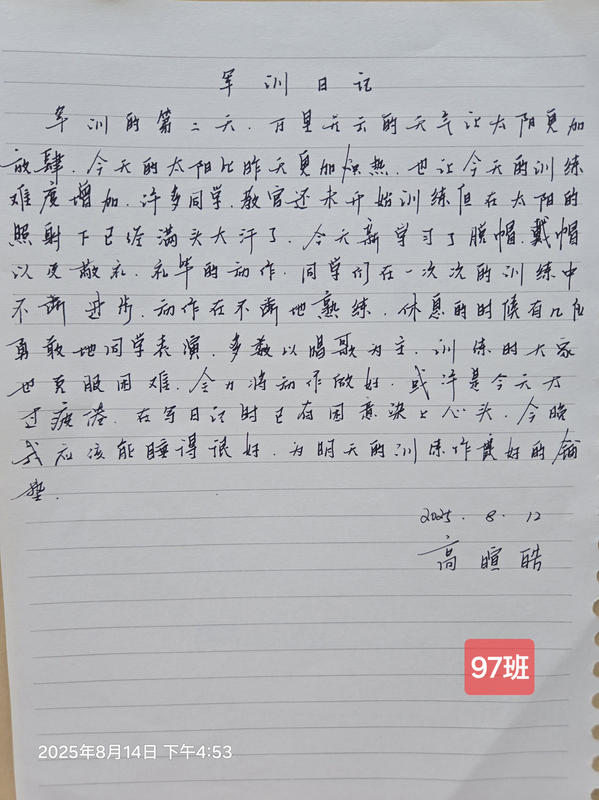 军训日记
军训的第二天，万里无云的天气让太阳更加
放肆，今天的太阳比昨天更加炽热，也让今天的训练
难度增加，许多同学，教官还未开始训练但在太阳的
照射下已经满头大汗了，今天新学习了脱帽，戴帽
以及敬礼，礼毕的动作，同学们在一次次的训练中
不断进步，动作在不断地熟练，休息的时候有几名
勇敢地同学表演，多数以唱歌为主，训练的大家
也克服困难，全力将动作做好，或许是今天太
过疲惫，在写日记时已有困意染上心头，今晚
我应该能睡得很好，为明天的训练作最好的铺
垫．
2025．8．12
高暄皓
97班
2025年8月14日 下午4:53